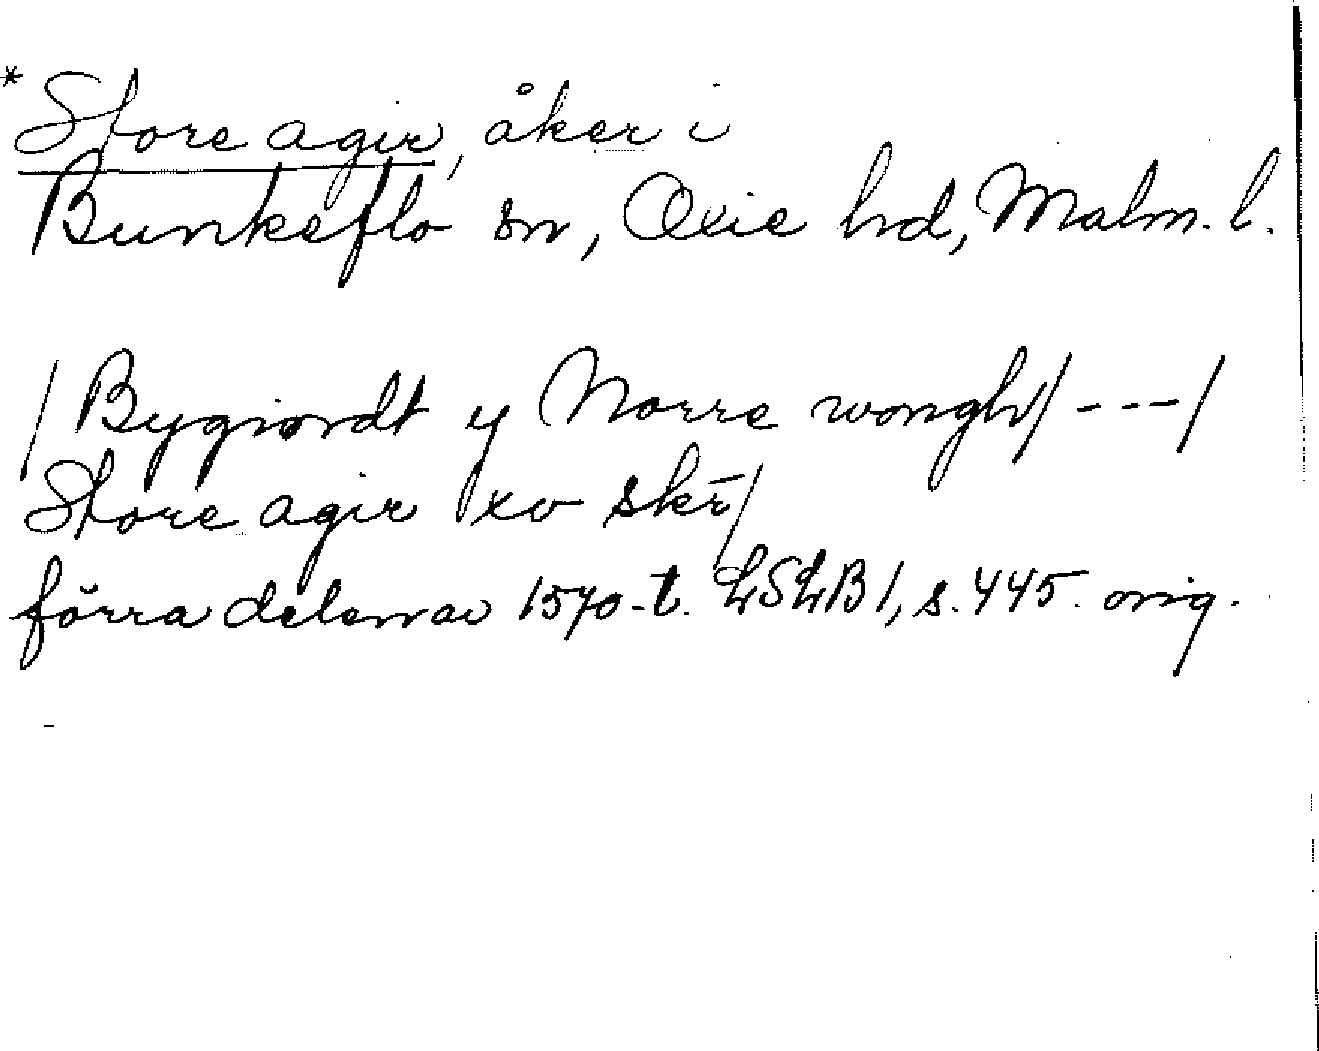 * Store agir, åker i
Bunkeflo sn, Oxie hd, Malm. l.
/ Bygiordt y Norre wongh / --- /
Store agir xv skr /
förra delen av 1570-t. LSLB 1, s. 445. orig.